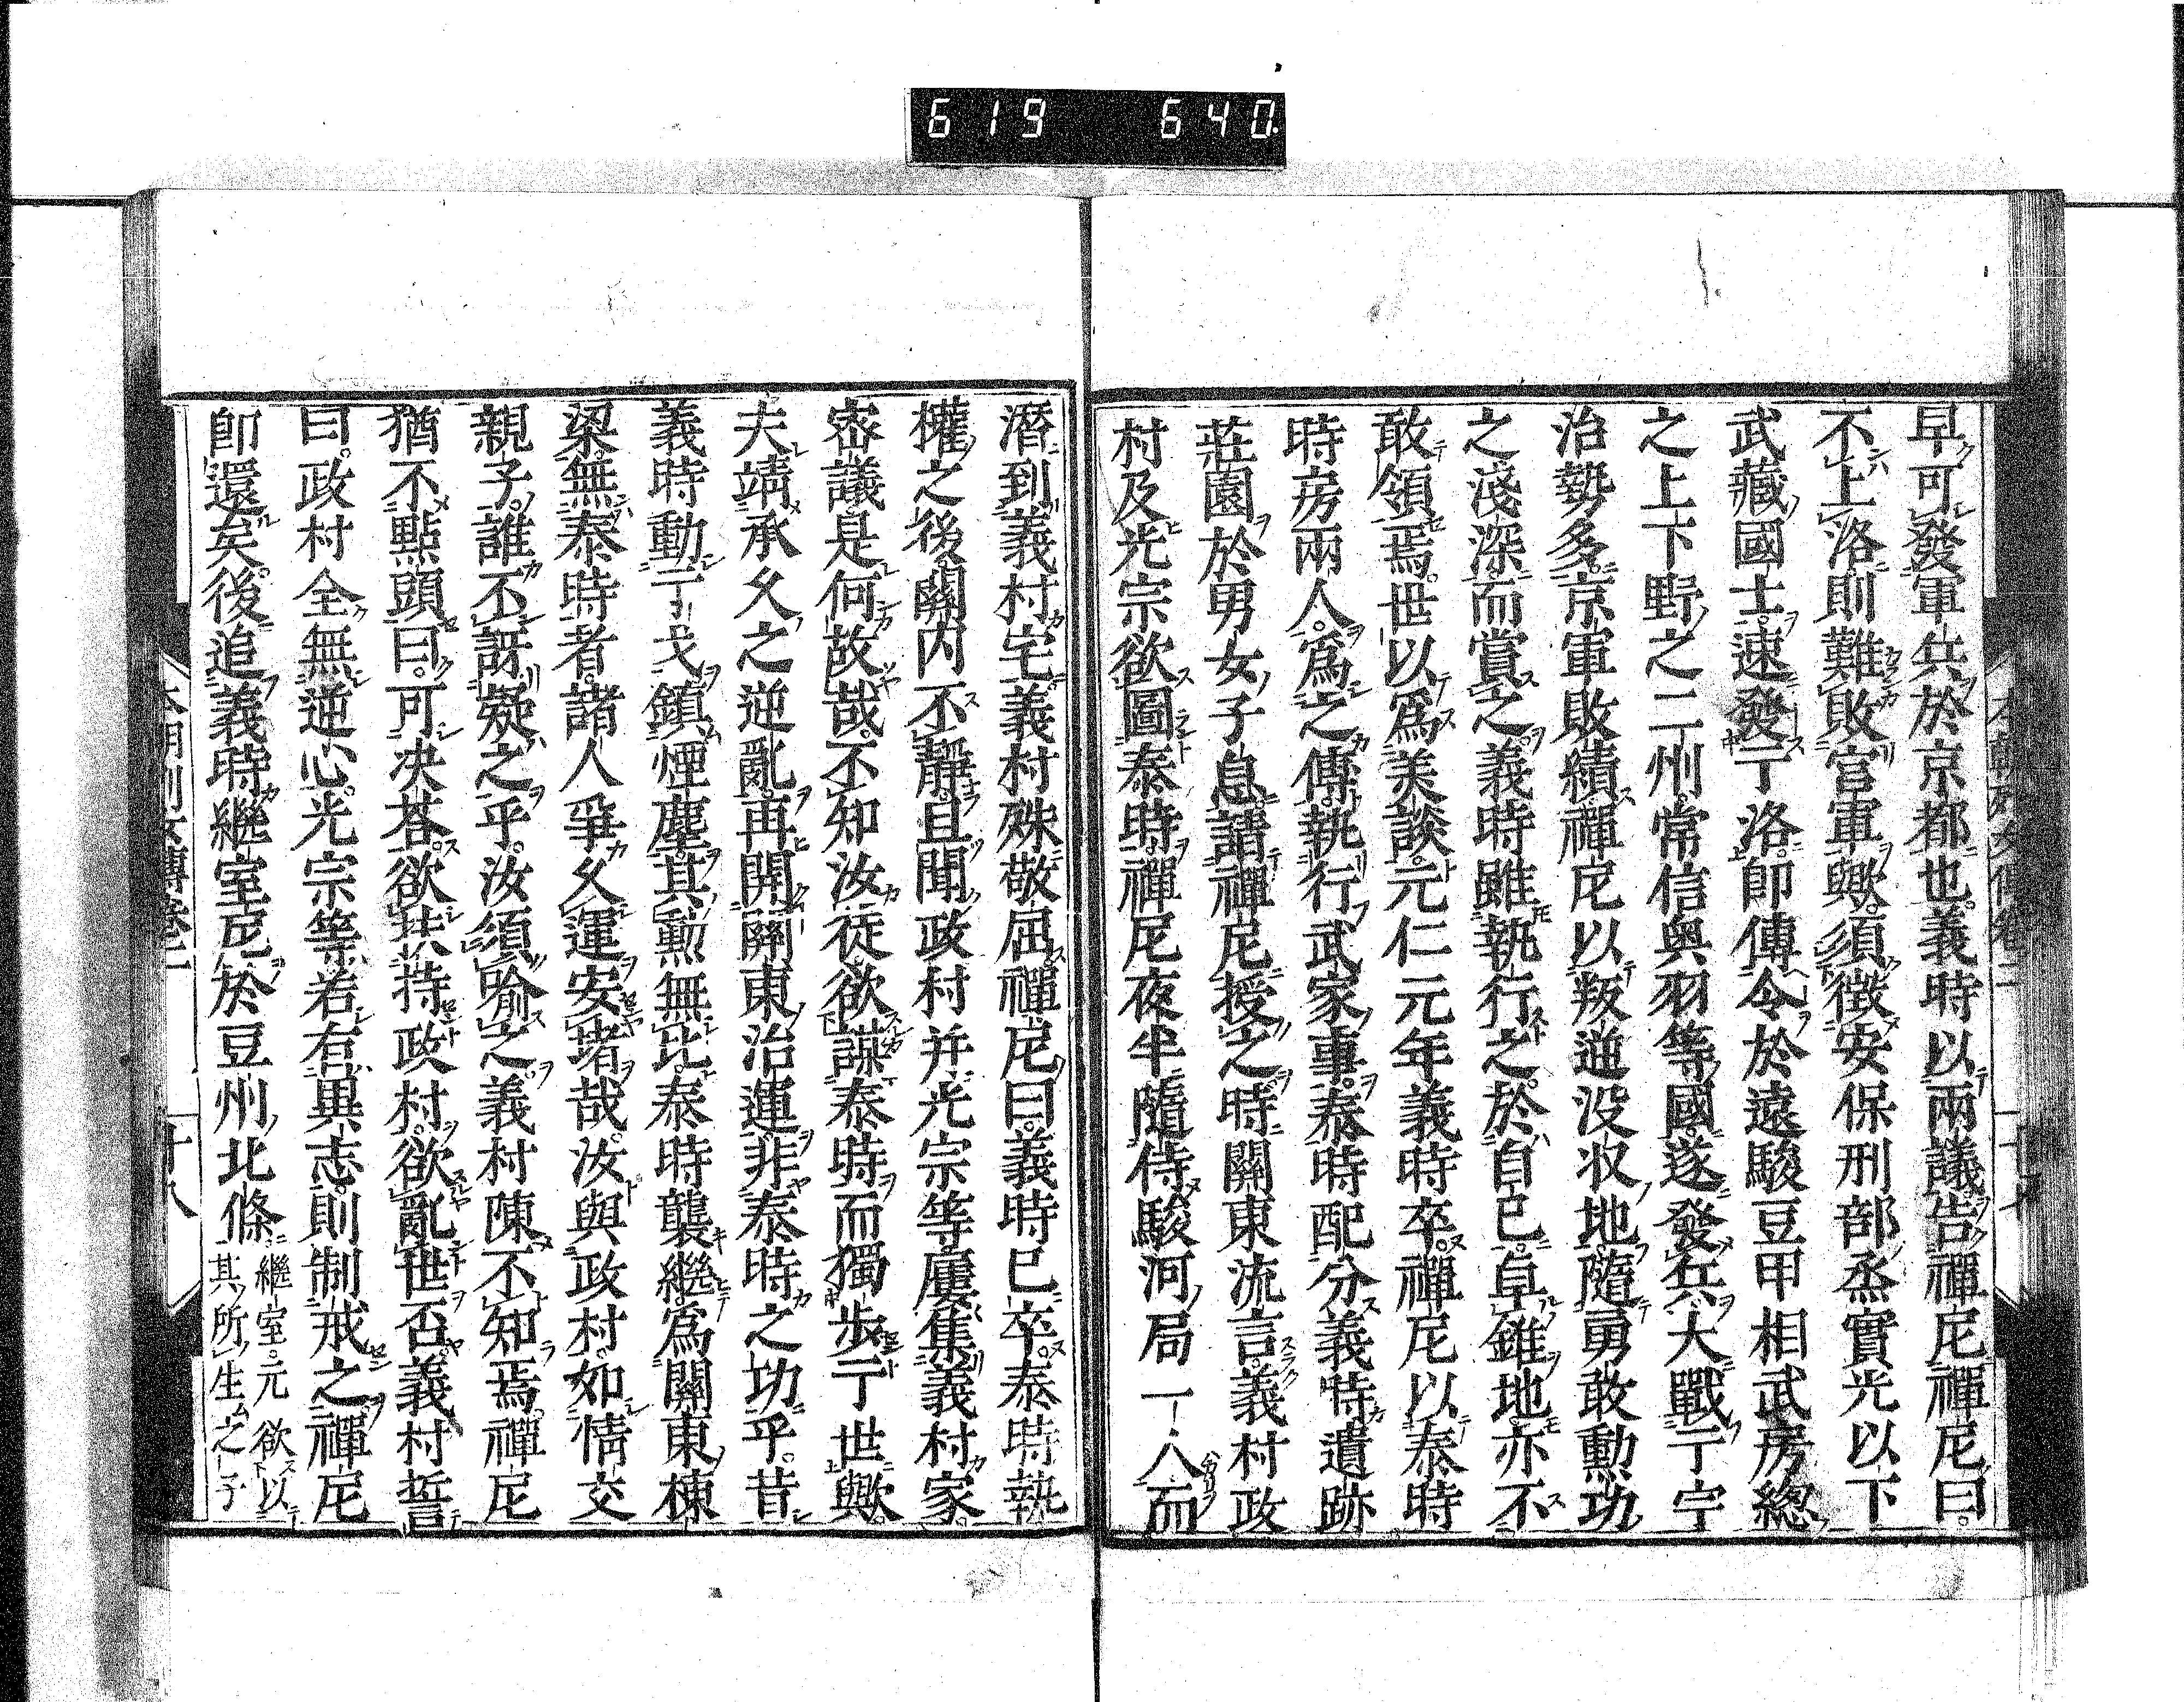 619 640
早可發軍兵於京都也。義時以兩議告禪尼。禪尼曰。
不上洛則難敗官軍歟。須徵安保刑部丞實光以下
武藏國士。速發丁洛。即傳令於遠駿豆甲相武房總
之上下野之二州。常信與羽等國。遂發兵大戰于宇
治勢多。京軍敗績。禪尼以叛逆没収地。隨勇敢勳功
之淺深。而賞之。義時雖執行之。於自已。阜錐地。亦不
敢領焉。世以爲美談。元仁元年義時卒。禪尼以泰時
時房兩人。爲之傳。執行武家事。泰時配分義時遺跡
莊園於男女子息。請禪尼授之。時關東流言。義村政
村及光宗欲圖泰時。禪尼夜半隨侍駿河局一人而
潛到義村宅。義村殊敬屈。禪尼曰。義時已卒。泰時執
權之後。關内不靜。且聞政村并光宗等屢集義村家。
密議。是何故哉。不知汝徒。欲謀泰時而獨步于世歟。
夫靖承久之逆亂。再開關東治運。非泰時之功乎。昔
義時動于戈。鎮煙塵。其勳無比。泰時襲繼。爲關東棟
梁。無泰時者。諸人爭久運安堵哉。汝與政村。如情交
親子。誰不訝疑之乎。汝須喩之。義村陳不知焉。禪尼
猶不點頭曰。可決荅。欲扶持政村。欲亂世否。義村誓
曰。政村全無逆心。光宗等若有異志。則制戒之。禪尼
即還矣。後追義時繼室尼於豆州北條。繼室。元欲以其所生之子
本朝列女傳卷二 十七
本朝列女傳卷二 十八